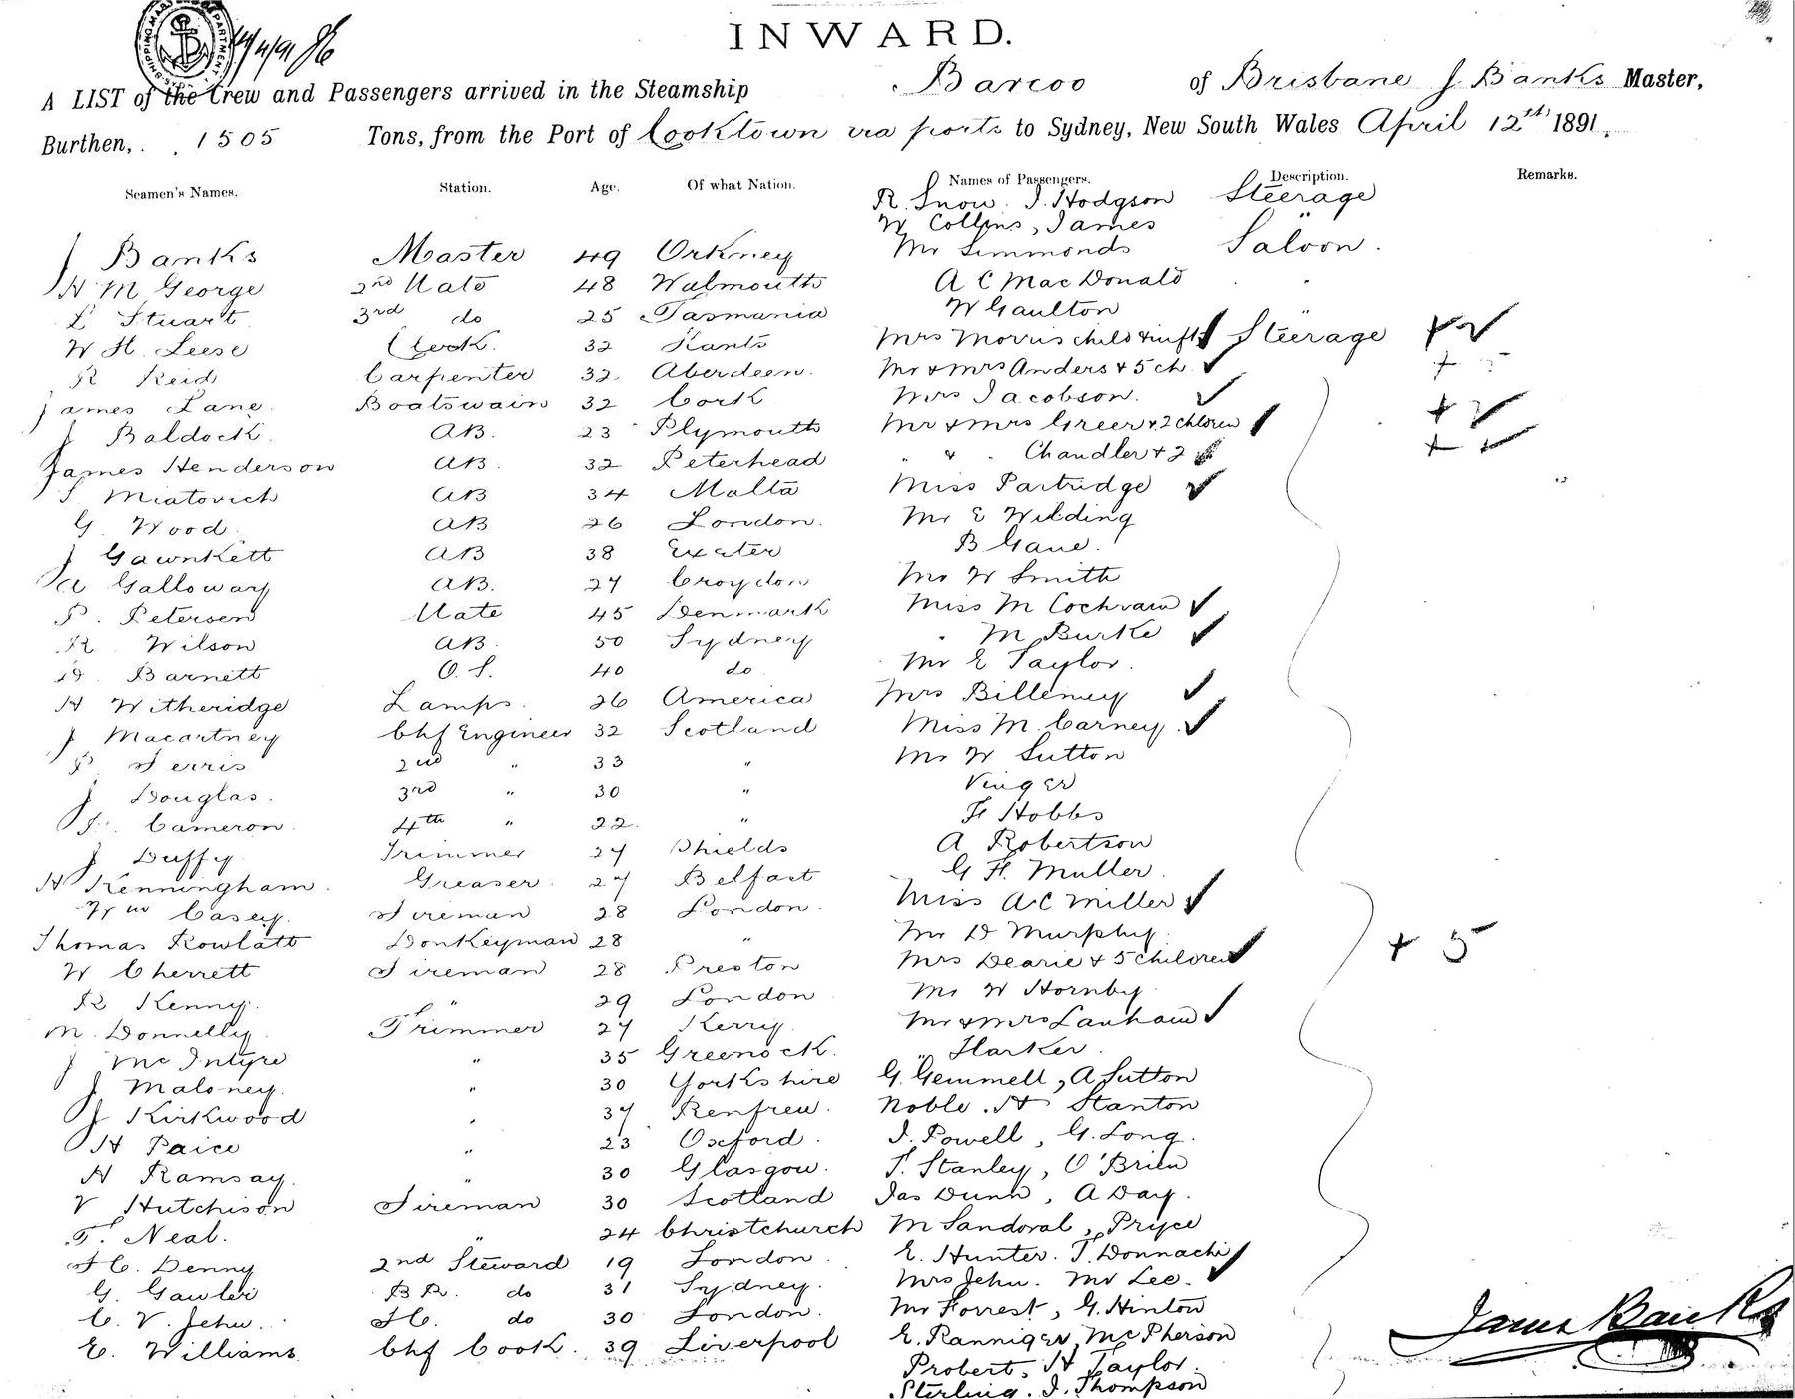 INWARD.
14/4/91
A LIST of the Crew and Passengers arrived in the Steamship Barcoo of Brisbane J Banks Master,
Burthen, 1505 Tons, from the Port of Cooktown via ports to Sydney, New South Wales April 12th 1891.
Seamen's Names. Station. Age. Of what Nation. Names of Passengers. Description. Remarks.
R. Snow. J. Hodgson Steerage
W Collins, James "
J Banks Master 49 Orkney Mr Simmonds Saloon.
H M George 2nd Mate 48 Walmouth A C MacDonald "
L Stuart 3rd do 25 Tasmania W Gaulton "
W H. Leese Clerk. 32 Hants Mrs Morris child & inft Steerage + 2
R Reid Carpenter 32 Aberdeen. Mr & Mrs Anders & 5 ch + 5
James Lane. Boatswain 32 Cork Mrs Jacobson.
J Baldock. AB. 23 Plymouth Mr & Mrs Greer & 2 children + 2
James Henderson AB. 32 Peterhead " & " Chandler & 2 +
S Miatovich AB 34 Malta Miss Partridge
G. Wood AB 26 London. Mr E Wilding
J Gawnkett AB 38 Exeter B Gane.
A Galloway AB. 27 Croydon Mr W Smith
P. Petersen Mate 45 Denmark Miss M Cochrane
R Wilson AB. 50 Sydney " M Burke
H. Barnett O. S. 40 do Mr E Taylor.
H Witheridge Lamps. 26 America Mrs Billeney
J Macartney Chf Engineer 32 Scotland Miss M. Carney.
P. Ferris 2nd " 33 " Mr W Sutton
J Douglas. 3rd " 30 " Vinger
J. Cameron. 4th " 22. " F Hobbs
J Duffy Trimmer 27 Shields A Robertson
H Kenningham. Greaser. 27 Belfast G. H. Muller.
Wm Casey. Fireman 28 London. Miss A C Miller
Thomas Rowlatt Donkeyman 28 " Mr D Murphy.
W Cherrett Fireman 28 Preston Mrs Dearie & 5 children + 5
R Kenny. " 29 London Mr W Hornby.
M. Donnelly. Trimmer 27 Kerry. Mr & Mrs Lanham
J McIntyre " 35 Greenock. " Harker.
J Maloney. " 30 Yorkshire G. Gemmell, A Sutton
J Kirkwood " 37 Renfrew. Noble. H Stanton
H Paice " 23 Oxford. J. Powell, G. Long.
H Ramsay. " 30 Glasgow. T. Stanley, O'Brien
V Hutchison Fireman 30 Scotland Jas Dunn, A Day.
T. Neal. " 24 Christchurch M Sandoval, Pryce
H C. Denny 2nd Steward 19 London. E. Hunter. T. Donnachi
G. Gawler B R. do 31 Sydney. Mrs Jehu. Mr Lee.
C. V. Jehu. F C. do 30 London. Mr Forrest, G. Hinton
E. Williams Chf Cook. 39 Liverpool E. Ranniger, McPherson
Probert, H Taylor.
Sterling. J. Thompson
James Banks